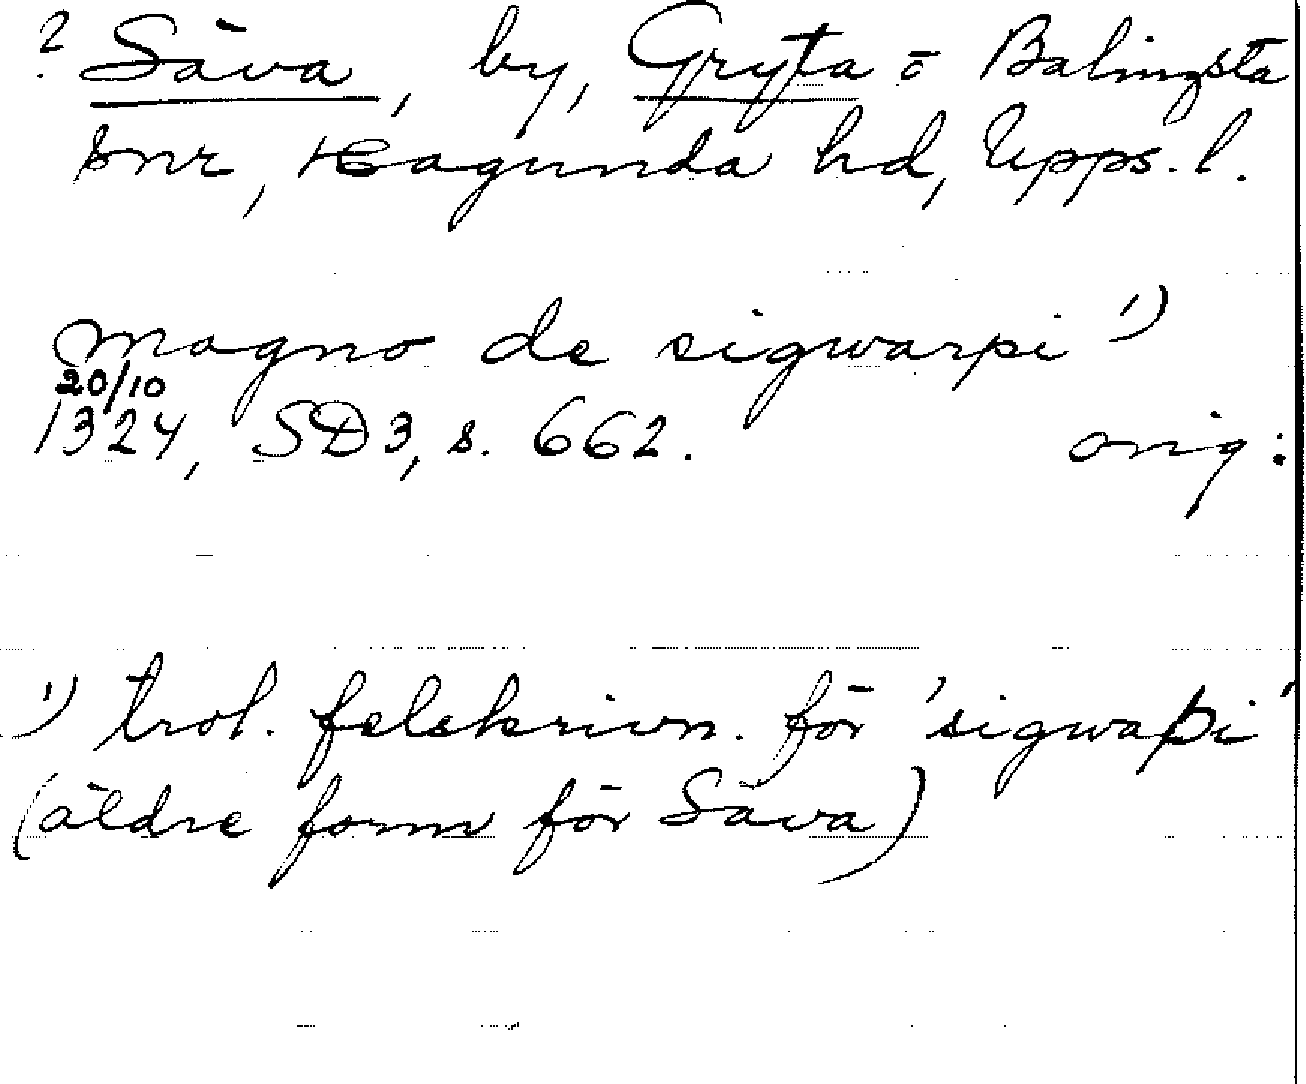 ? Säva, by, Gryta o Balingsta
snr, Hagunda hd, Upps. l.
magno de sigwarpi ¹)
20/10
1324, SD3, s. 662. orig:
¹) trol. felskrivn. för 'sigwaþi'
(äldre form för Säva)